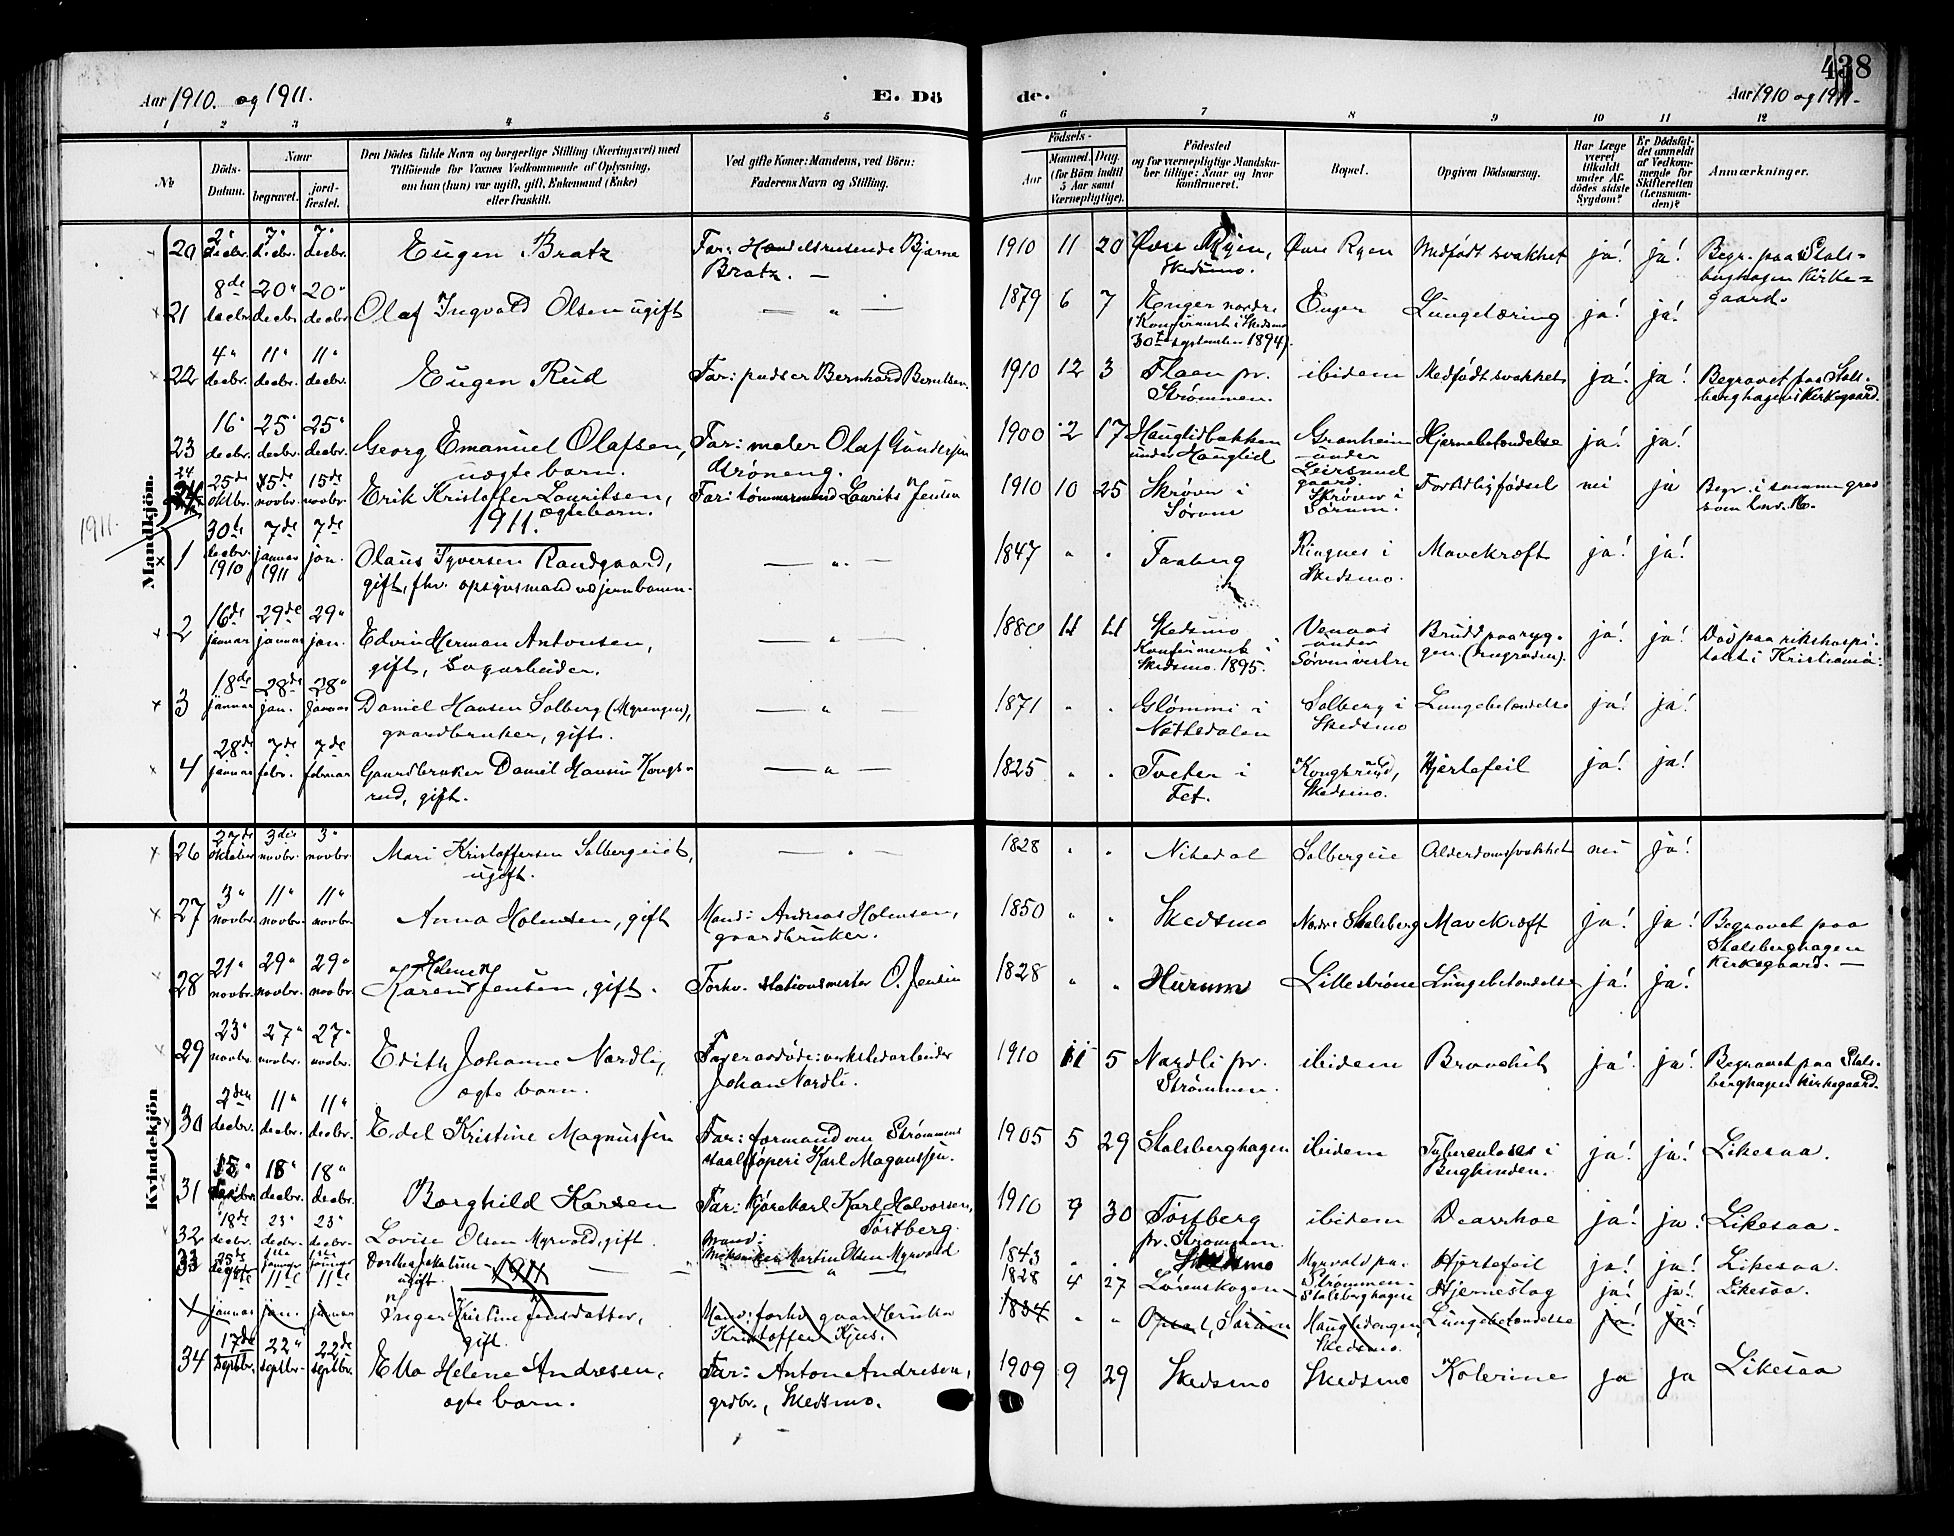 438
Aar 1910. og 1911.
E. Dö
de.
Aar 1910 og 1911.
1 2 3 4 5 6 7 8 9 10 11 12
№
Döds-Datum.
Naar
begravet.
jord-fæstet.
Den Dödes fulde Navn og borgerlige Stilling (Næringsvei) med
Tilföiende for Voxnes Vedkommende af Oplysning,
om han (hun) var ugift, gift, Enkemand (Enke)
eller fraskilt.
Ved gifte Koner: Mandens, ved Börn:
Faderens Navn og Stilling.
Födsels-
Aar
Maaned. Dag.
(for Börn indtil
5 Aar samt
Værnepligtige).
Födested
og for værnepligtige Mandska-
ber tillige: Naar og hvor
konfirmeret.
Bopæl.
Opgiven Dödsaarsag.
Har Læge
været
tilkaldt
under Af-
dödes sidste
Sygdom?
Er Dödsfal-
det anmeldt
af Vedkom-
mende for
Skifteretten
(Lensman-
den)?
Anmærkninger.
Mandkjön.
20 2" decbr. 7" decbr. 7" decbr. Eugen Bratz Far: Handelsreisende Bjarne Bratz. — 1910 11 20 Øvre Ryen, Skedsmo. Øvre Ryen Medfödt svakhet ja! ja! Begr. paa Stals-berghagen Kirke-gaard.
21 8de decbr. 20" decbr. 20" decbr. Olaf Ingvald Olsen ugift — " — 1879 6 7 Enger nordre (Konfirmert i Skedsmo 30te september 1894). Enger Lungetæring ja! ja!
22 4" decbr. 11" decbr. 11" decbr. Eugen Rud Far: pudser Bernhard Berntsen. 1910 12 3 Flaen pr. Strømmen. ibidem Medfödt svakhet ja! ja! Begravet paa Stals-berghagens Kirkegaard.
23 16" decbr. 25" decbr. 25" decbr. Georg Emanuel Olafsen, uægte barn. Far: maler Olaf Gundersen Strøneng. 1900 2 17 Hauglidbakken under Hauglid Granheim under Leirsund gaard. Hjernebetændelse ja! ja!
24 25de oktbr. 15de novbr. 15de novbr. Erik Kristoffer Lauritsen, ægte barn. Far: tømmermand Laurits Jensen 1910 10 25 Skrøver i Sørum Skrøver i Sørum. For tidlig födsel nei ja Begr. i samme grav som
1911.
1911.
1 30te decbr. 1910 7de januar 1911 7de jan. Olaus Syversen Randgaard, gift, fhv. opsynsmand v. jernbanen. — " — 1847 " " Faaberg Ringnes i Skedsmo. Mavekræft ja! ja!
2 16de januar 29de januar 29" jan. Edvin Herman Antonsen, gift, Sagarbeider. — " — 1880 11 11 Skedsmo Konfirmert i Skedsmo 1895. Venaas under Sørum vestre Brudd paa ryg-gen. (rygraden). ja! ja! Død paa rikshospi-talet i Kristiania.
3 18de januar 28de jan. 28" januar Daniel Hansen Solberg (Myrengen), gaardbruker, gift. — " — 1871 " " Glømmi i Nittedalen Solberg i Skedsmo Lungebetændelse ja! ja!
4 28de januar 7de febr. 7de februar Gaardbruker Daniel Hansen Kongs-rud, gift. — " — 1825 " " Tveter i Fet. Kongsrud, Skedsmo. Hjertefeil ja! ja!
Kvindekjön
26 27de oktober 3die novbr. 3" novbr. Mari Kristoffersen Solbergeiet, ugift. — " — 1828 " " Nitedal Solbergeie Alderdomssvakhet nei ja!
27 3" novbr. 11" novbr. 11" novbr. Anna Holmsen, gift Mand: Andreas Holmsen, gaardbruker. 1850 " " Skedsmo Nordre Stalsberg Mavekræft ja! ja! Begravet paa Stalsberghagen Kirkegaard. —
28 21" novbr. 29" novbr. 29" novbr. Karen Helene Jensen, gift. Forhv. stationsmester O. Jensen 1828 " " Hurum Lillestrøm Lungebetændelse ja! ja!
29 23" novbr. 27" novbr. 27" novbr. Edith Johanne Nordli, ægte barn. Far verkstedarbeider Johan Nordli. 1910 11 5 Nordli pr. Strømmen. ibidem Bronchit ja! ja! Begravet paa Stals-berghagen kirkegaard.
30 2den decbr. 11" decbr. 11" decbr. Edel Kristine Magnussen Far: formand ved Strømmens staalstøperi Karl Magnussen. 1905 5 29 Stalsberghagen ibidem Tuberculoses i Bughinden. ja! ja! Likesaa.
31 15" decbr. 18" decbr. 18" decbr. Borghild Karsen Far: Kjørekarl Karl Halvorsen, Torsberg. 1910 9 30 Torsberg pr. Strømmen ibidem Diarrhoe ja! ja! Likesaa.
32 18de decbr. 23" decbr. 23" decbr. Lovise Olsen Myrvold, gift. Mand: Martin Olsen Myrvold 1843 " " Skedsmo Myrvold pr. Strømmen Hjertefeil ja! ja! Likesaa.
33 25de decbr. januar januar ugift — " — 1828 4 27 Lørenskogen Stalsberghagen Hjerneslag ja! ja! Likesaa.
1911
1 januar 11te jan. 11te januar Inger Kristine Jensdatter, gift. Mand: forhv. gaardbruker Kristoffer Kjus. 1834 " " Opsal, Sørum Hauglidengen, Skedsmo. Lungebetændelse ja! ja!
34 17de septbr. 22" septbr. 22de septbr. Ella Helene Andresen, ægte barn. Far: Anton Andresen, grdbr., Skedsmo. 1909 9 29 Skedsmo Skedsmo Kolerine ja ja Likesaa